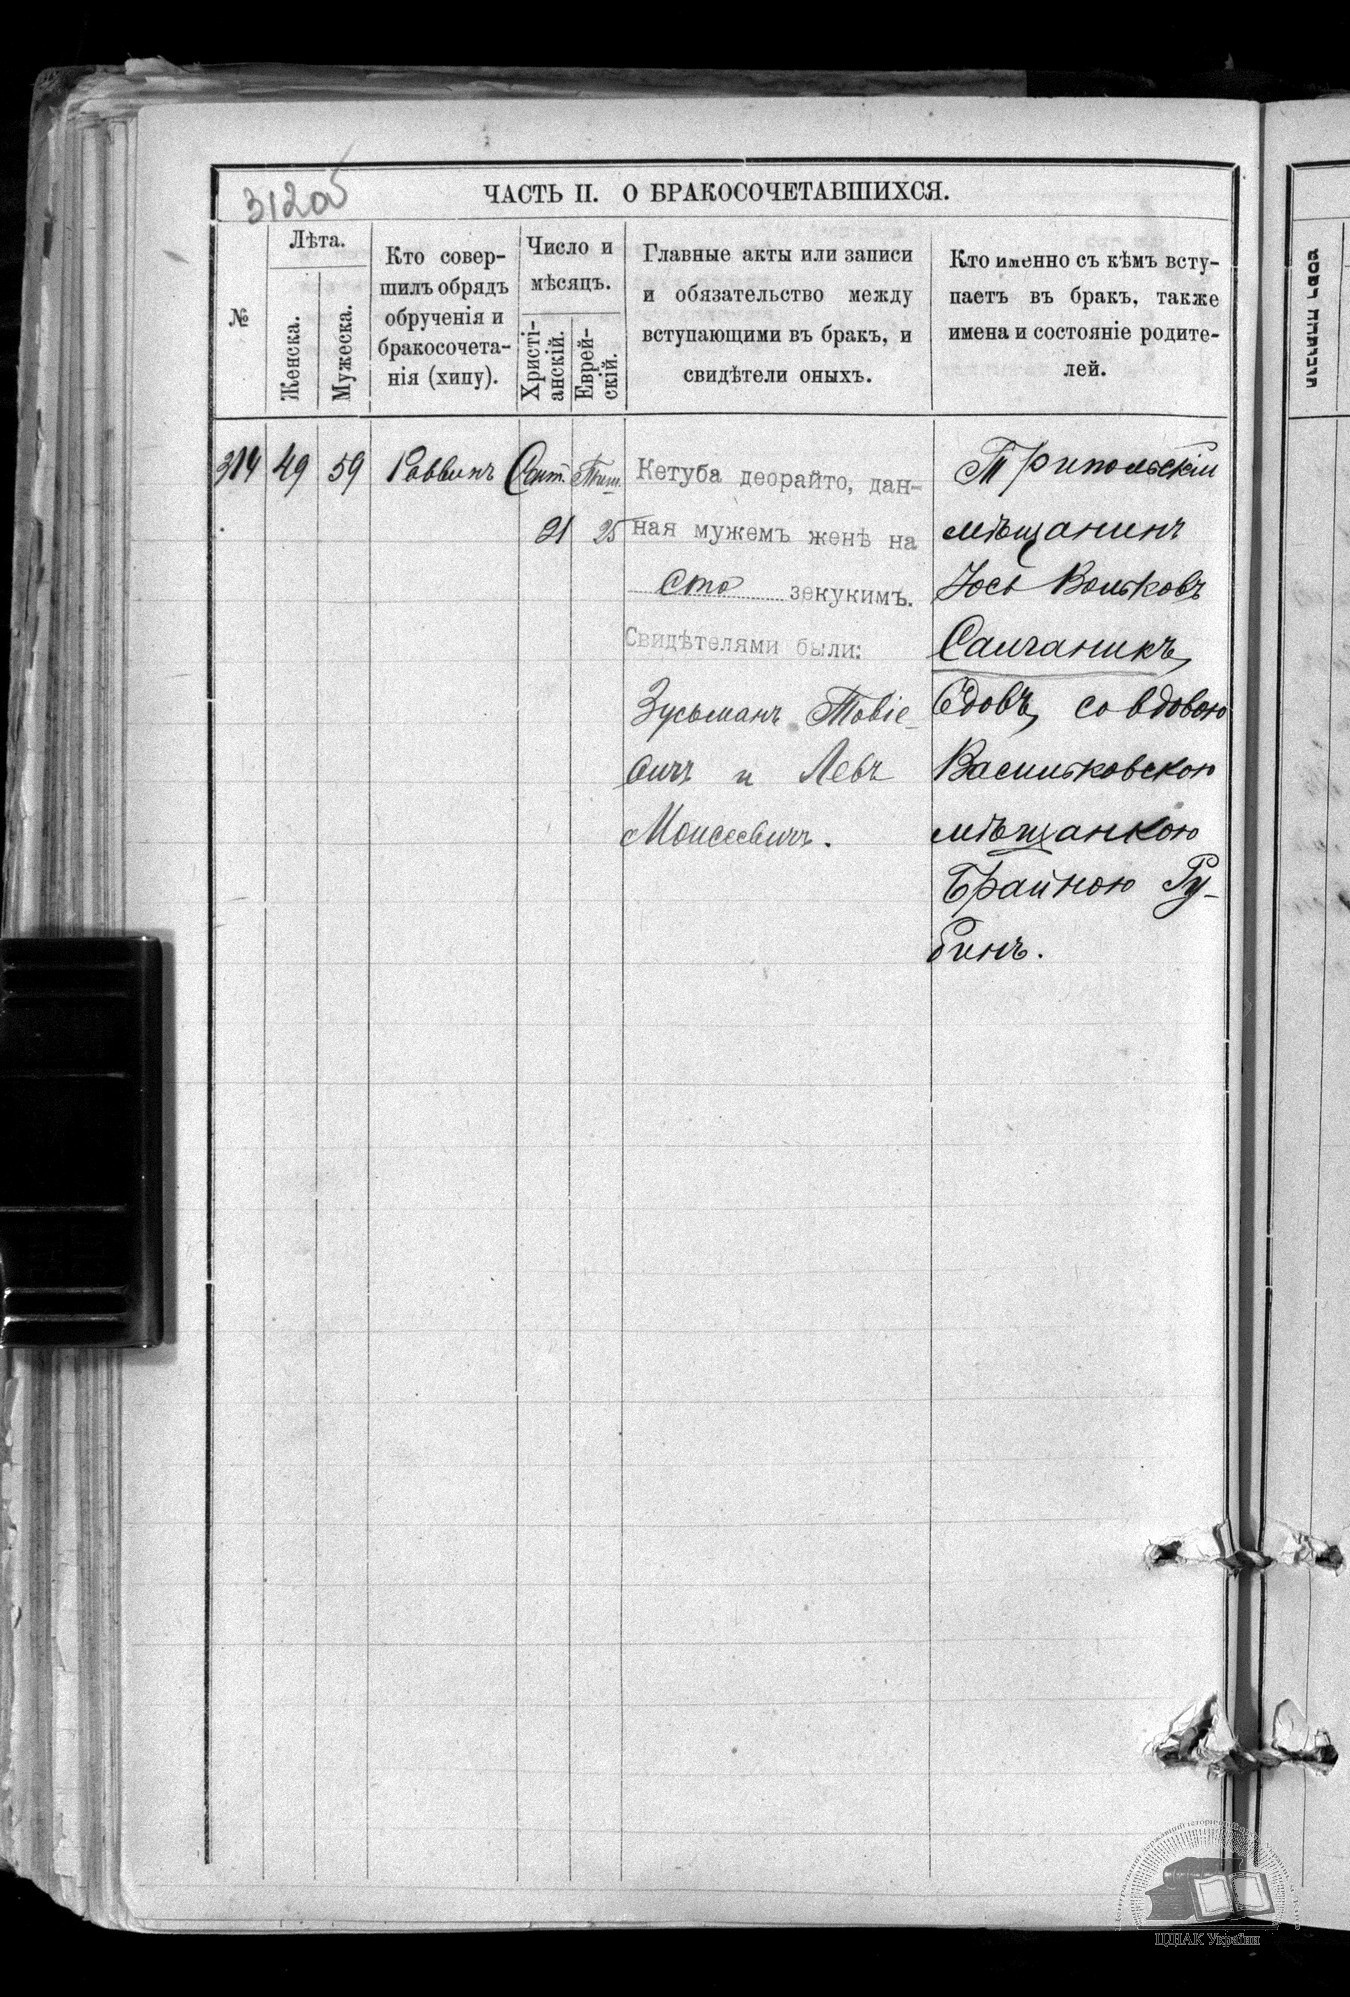 312об
ЧАСТЬ II. О БРАКОСОЧЕТАВШИХСЯ.
№
Лѣта.
Женска.
Мужеска.
Кто совер-
шилъ обрядъ
обрученія и
бракосочета-
нія (хипу).
Число и
мѣсяцъ.
Христі-
анскій.
Еврей-
скій.
Главные акты или записи
и обязательство между
вступающими въ бракъ, и
свидѣтели оныхъ.
Кто именно съ кѣмъ всту-
паетъ въ бракъ, также
имена и состояніе родите-
лей.
314
49
59
Раввинъ
Сент.
21
Тиш.
25
Кетуба деорайто, дан-
ная мужемъ женѣ на
сто зекукимъ.
Свидѣтелями были:
Зусьманъ Товіе-
вичъ и Левъ
Моисеевичъ.
Трипольскій
мѣщанинъ
Іось Вольковъ
Салганикъ,
вдовъ, со вдовою
Васильковскою
мѣщанкою
Брайною Ру-
бинъ.
ЦДІАК України